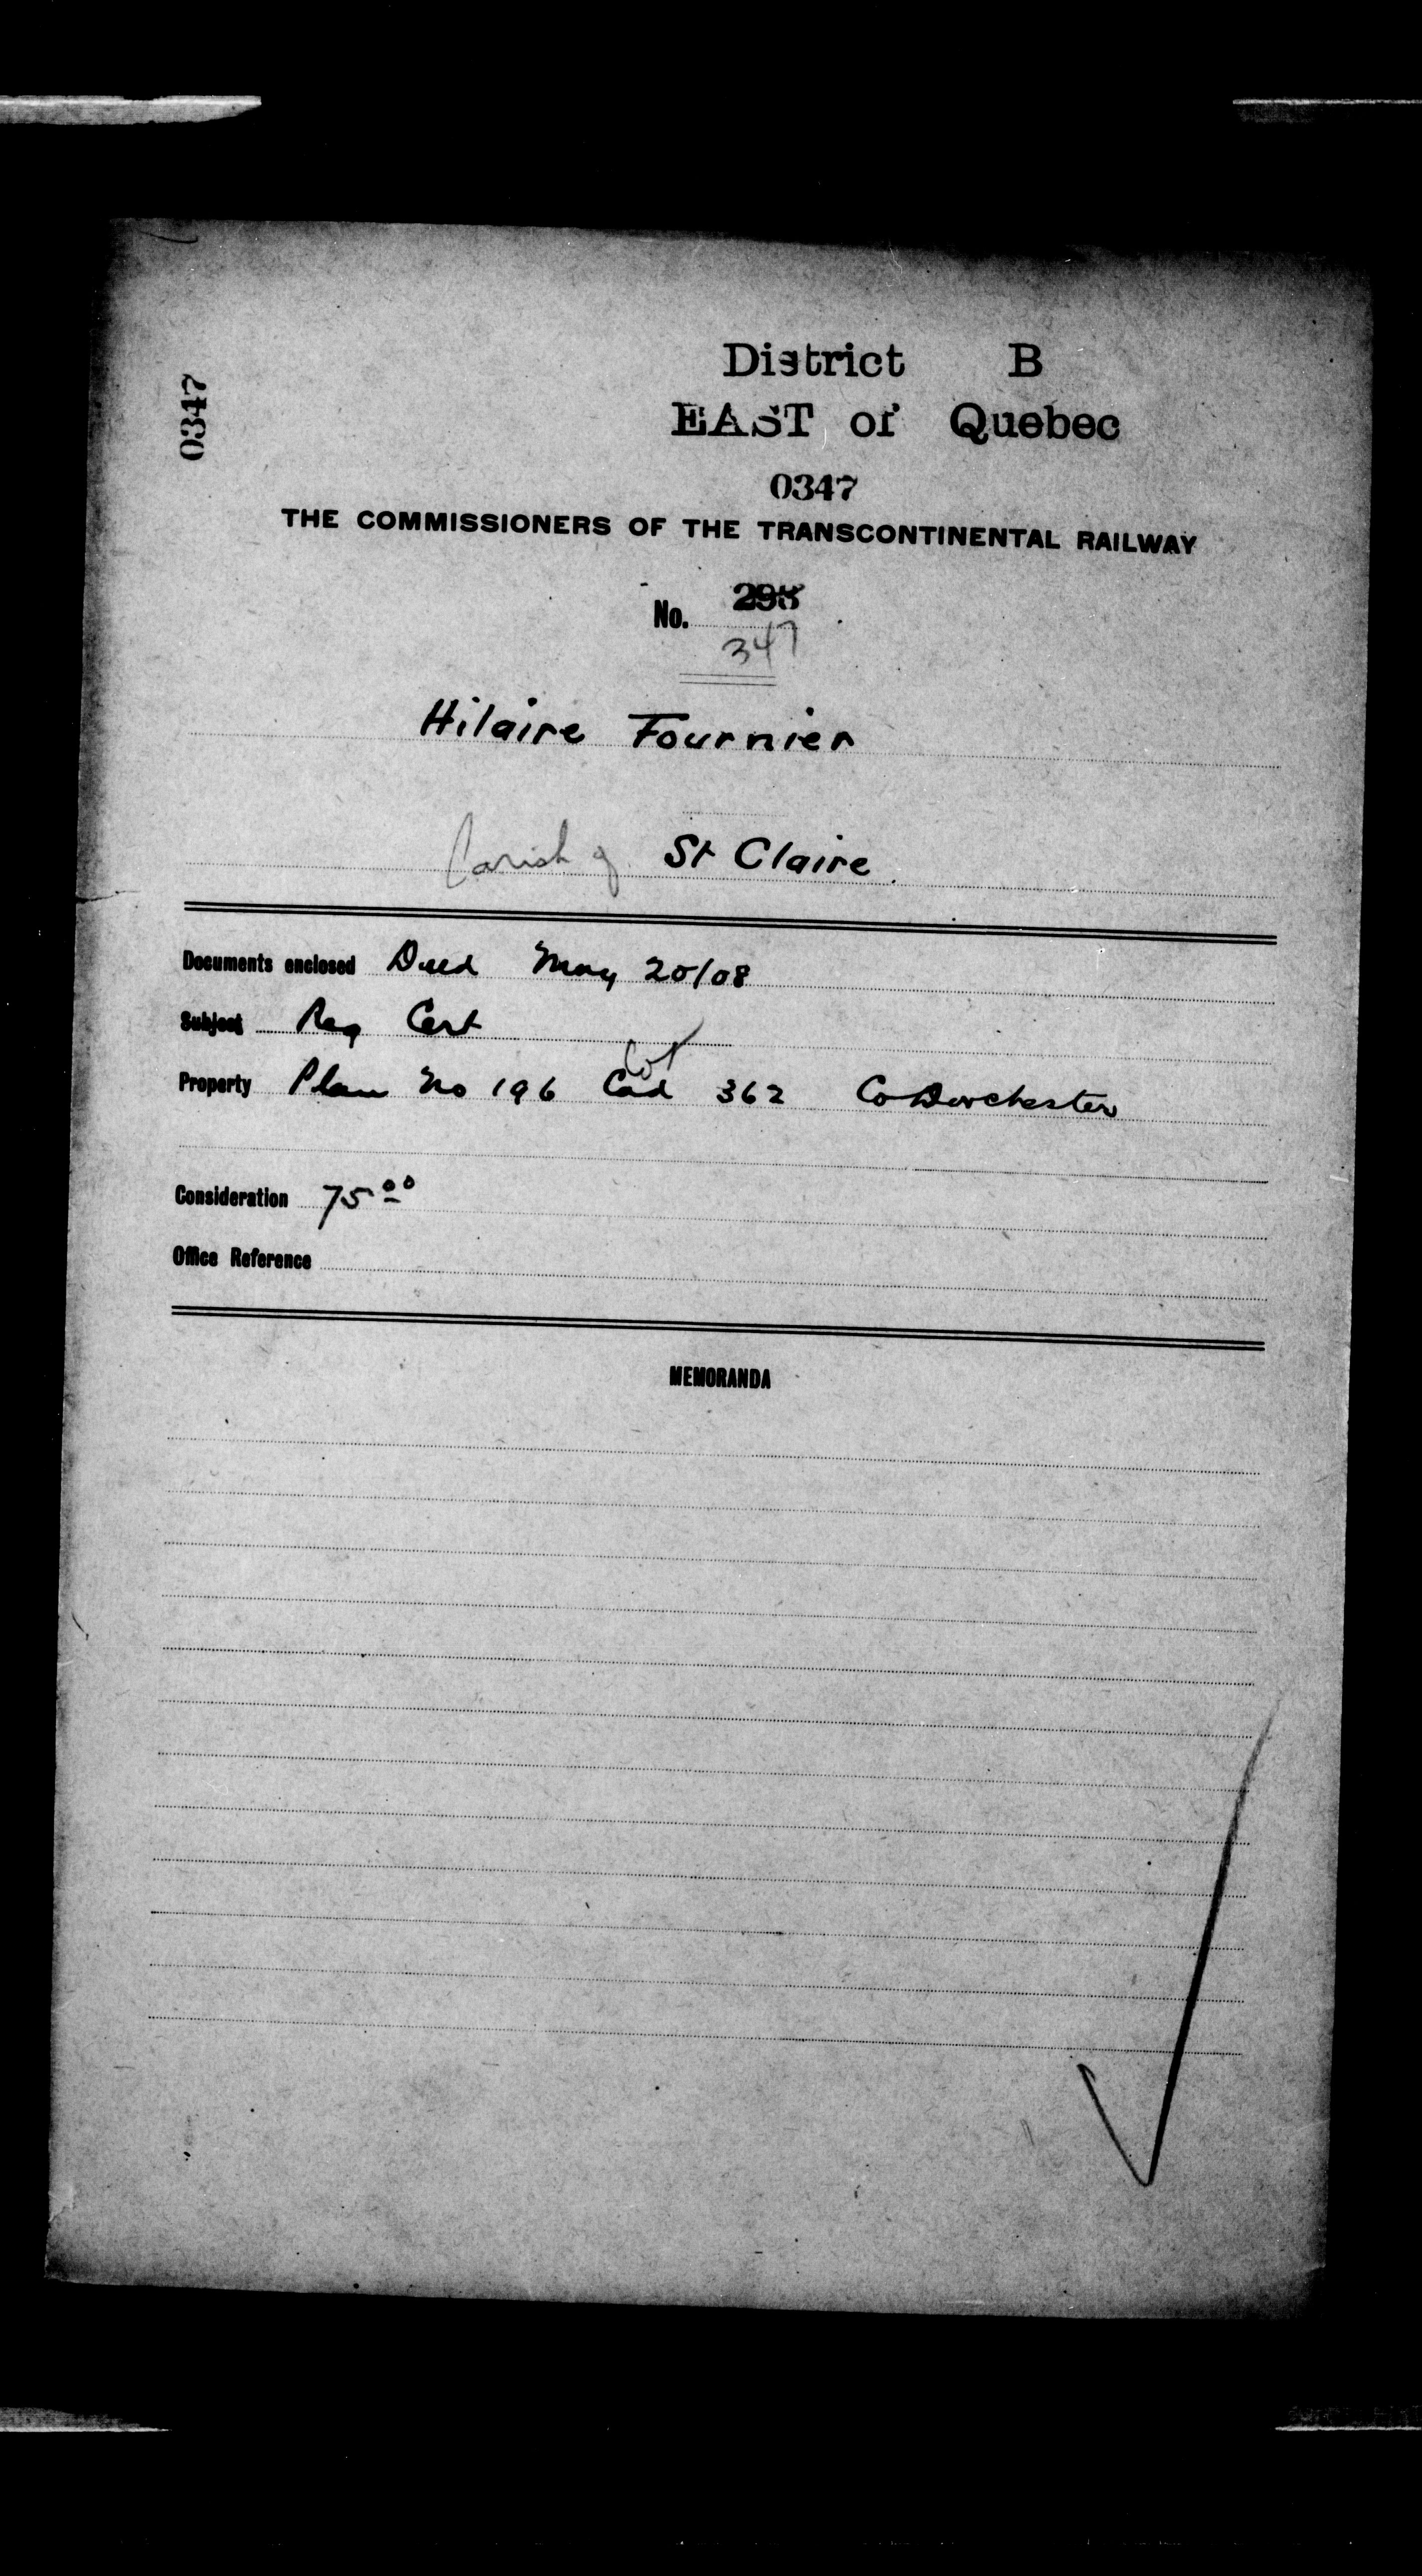 0347
District B
EAST of Quebec
0347
THE COMMISSIONERS OF THE TRANSCONTINENTAL RAILWAY
No.
347
Hilaire Fournier
Parish of St Claire.
Documents enclosed Deed May 20/08
Subject Reg Cert
Lot
Property Plan No 196 Cad 362 Co Dorchester
Consideration 75 00
Office Reference
MEMORANDA